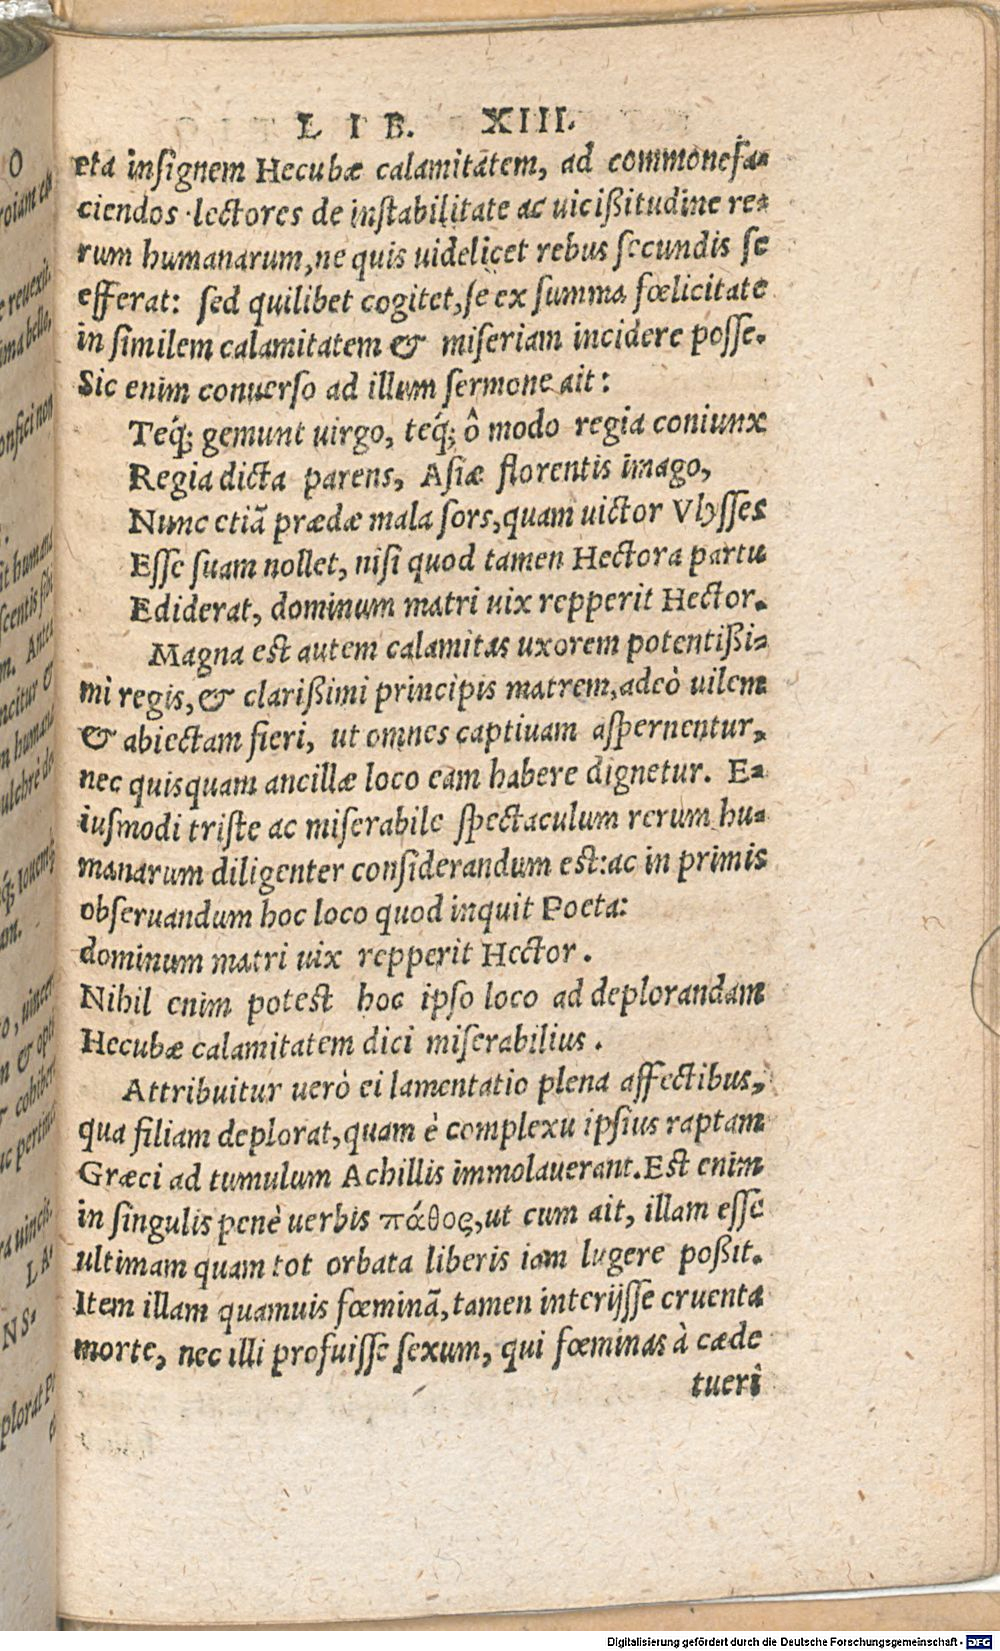 LIB. XIII.
eta insignem Hecubæ calamitatem, ad commonefa-
ciendos lectores de instabilitate ac uicißitudine re-
rum humanarum, ne quis uidelicet rebus secundis se
efferat: sed quilibet cogitet, se ex summa fœlicitate
in similem calamitatem & miseriam incidere posse.
Sic enim conuerso ad illum sermone ait:
Teq́; gemunt uirgo, teq́; ô modo regia coniunx
Regia dicta parens, Asiæ florentis imago,
Nunc etiã prædæ mala sors, quam uictor Vlysses
Esse suam nollet, nisi quod tamen Hectora partu
Ediderat, dominum matri uix repperit Hector.
Magna est autem calamitas uxorem potentißi-
mi regis, & clarißimi principis matrem, adeò uilem
& abiectam fieri, ut omnes captiuam aspernentur,
nec quisquam ancillæ loco eam habere dignetur. E-
iusmodi triste ac miserabile spectaculum rerum hu-
manarum diligenter considerandum est: ac in primis
obseruandum hoc loco quod inquit Poeta:
dominum matri uix repperit Hector.
Nihil enim potest hoc ipso loco ad deplorandam
Hecubæ calamitatem dici miserabilius.
Attribuitur uerò ei lamentatio plena affectibus,
qua filiam deplorat, quam è complexu ipsius raptam
Græci ad tumulum Achillis immolauerant. Est enim
in singulis penè uerbis πάθος, ut cum ait, illam esse
ultimam quam tot orbata liberis iam lugere poßit.
Item illam quamuis fœminã, tamen interijsse cruenta
morte, nec illi profuisse sexum, qui fœminas à cæde
tueri
Digitalisierung gefördert durch die Deutsche Forschungsgemeinschaft - DFG